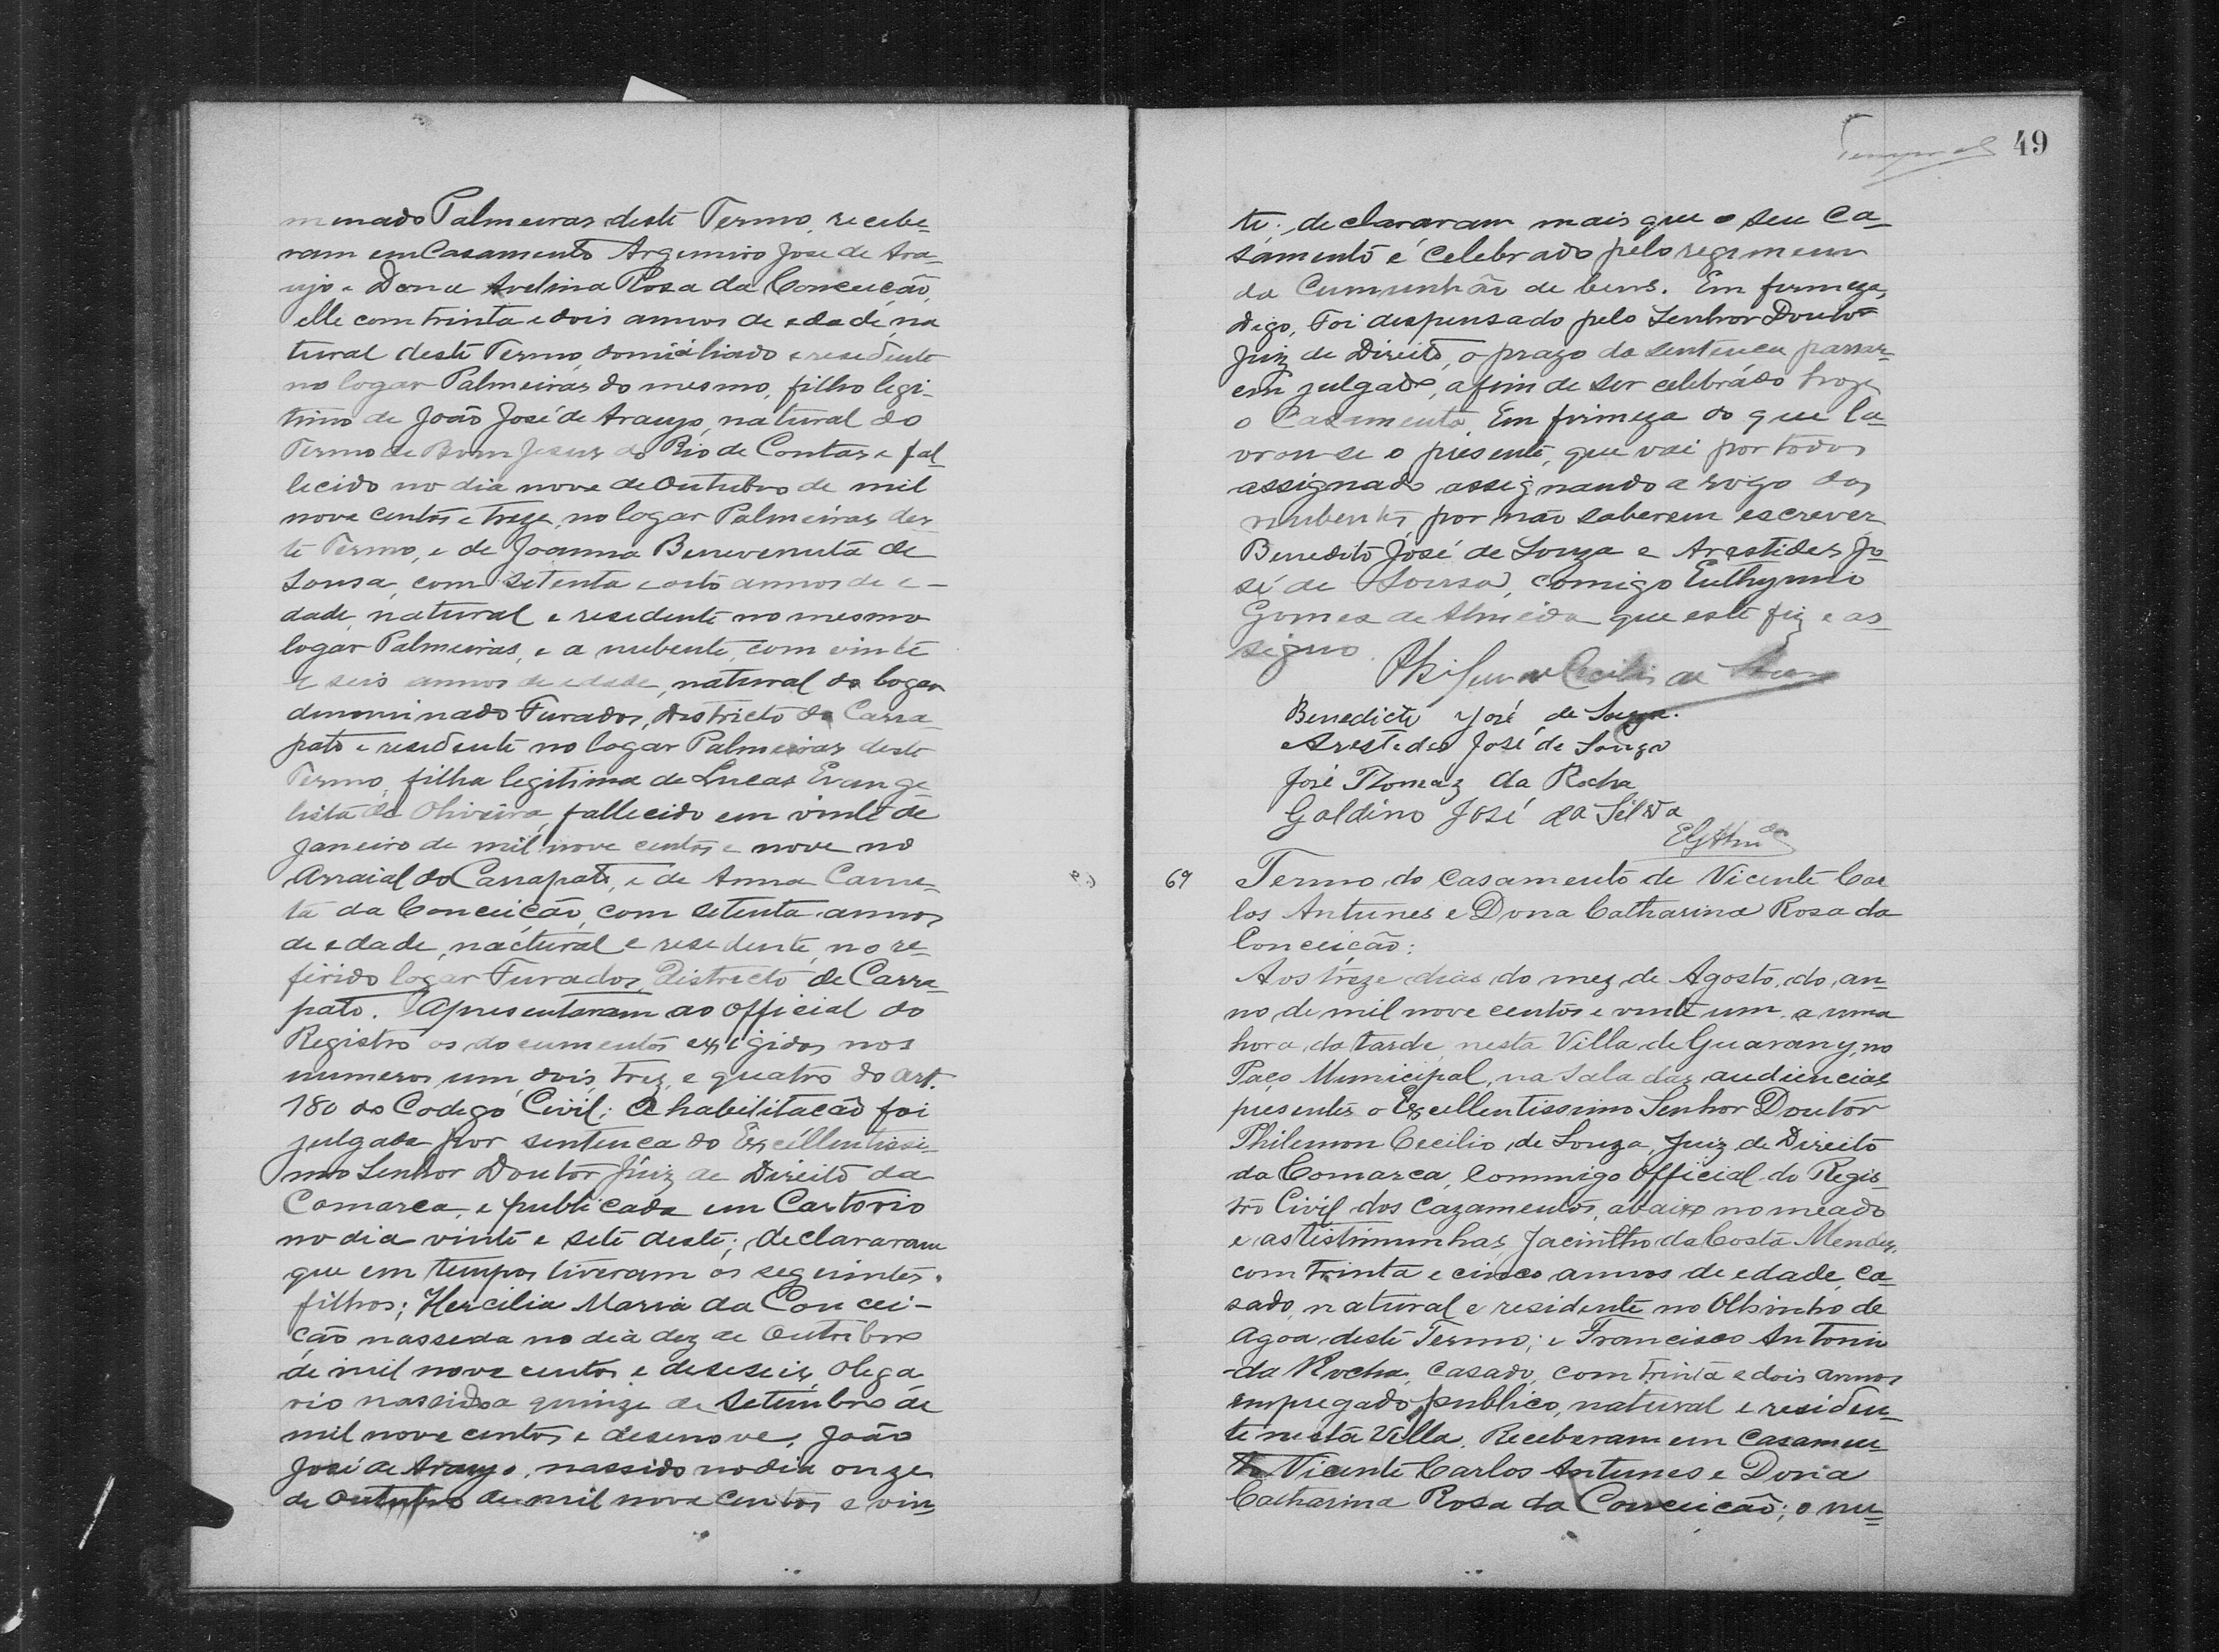 minado Palmeiras deste Termo, recebe-
ram em Casamento Argemiro José de Ara-
ujo e Dona Avelina Rosa da Conceição,
elle com trinta e dois annos de edade, na
tural deste Termo, domiciliado e residente
no logar Palmeiras do mesmo, filho legi-
timo de João José de Araujo, natural do
Termo de Bom Jesus do Rio de Contas e fal-
lecido no dia nove de Outubro de mil
nove centos e treze, no logar Palmeiras des
te Termo, e de Joanna Benevenuta de
Sousa, com setenta e oito annos de e-
dade, natural e residente no mesmo
logar Palmeiras, e a nubente, com vinte
e seis annos de edade, natural do logar
denominado Furados, districto do Carra-
pato e residente no logar Palmeiras deste
Termo, filha legitima de Lucas Evange-
lista de Oliveira, fallecido em vinte de
Janeiro de mil nove centos e nove no
Arraial do Carrapato, e de Anna
da Conceição, com setenta annos
de edade, nactural e residente, no re-
firido logar Furados, Districto de Carra-
pato. Apresentaram ao Official do
Registro os documentos exigidos nos
numeros um, dois, trez, e quatro do art.
180 do Codego Civil: A habilitação foi
julgada por sentença do Excellentissi-
mo Senhor Doutor Juiz de Direito da
Comarca, e publicada em Cartorio
no dia vinte e sete deste; declararam
que em tempos tiveram os seguintes.
filhos; Hercilia Maria da Concei-
ção nasseda no dia dez de Outubro
de mil nove centos e deseseis, Olega
rio nassido a quinze de Setembro de
mil nove centos e desenove, João
José de Araujo, nassido no dia onze
de Outubro de mil nove centos e vin-
49
te; declararam mais que o seu Ca-
samento é Celebrado pelo regimem
da Cumunhão de bens. Em firmeza,
digo, Foi despensado pelo Senhor Doutor
Juiz de Direito, o prazo da sentença passar-
em julgado, afim de ser celebrado hoje
o Casamento. Em firmeza do que la-
vrou-se o presente, que vai por todos
assignado assignando a rogo dos
nubentes por não saberem escrever
Benedito José de Souza e Arestides Jo-
sé de Sousa, comigo Euthymio
Gomes de Almeida que este fiz e as-
signo.
Benedicto José de Souza.
Arestides José de Souza
José Thomaz da Rocha
Galdino José da Silva
69 Termo do Casamento de Vicente Car
los Antunes e Dona Catharina Rosa da
Conceição:
Aos treze dias do mez de Agosto, do an-
no de mil nove centos e vinte um, a uma
hora da tarde, nesta Villa de Guarany, no
Paço Municipal, na Sala das audiencias
presentes o Excellentissimo Senhor Doutor
Philemon Cecilio de Souza, Juiz de Direito
da Comarca, Commigo Official do Regis-
tro Civil dos Cazamentos, abaixo nomeado
e as testimunhas, Jacintho da Costa Mendes,
com trinta e cinco annos de edade, ca-
sado, natural e residente no Olhinho de
Agoa deste Termo; e Francisco Antonio
da Rocha, casado, com trinta e dois annos
empregado publico, natural e residen-
te nesta Villa. Receberam em Casamen-
to Vicente Carlos Antunes e Dona
Catharina Rosa da Conceição; o nu-